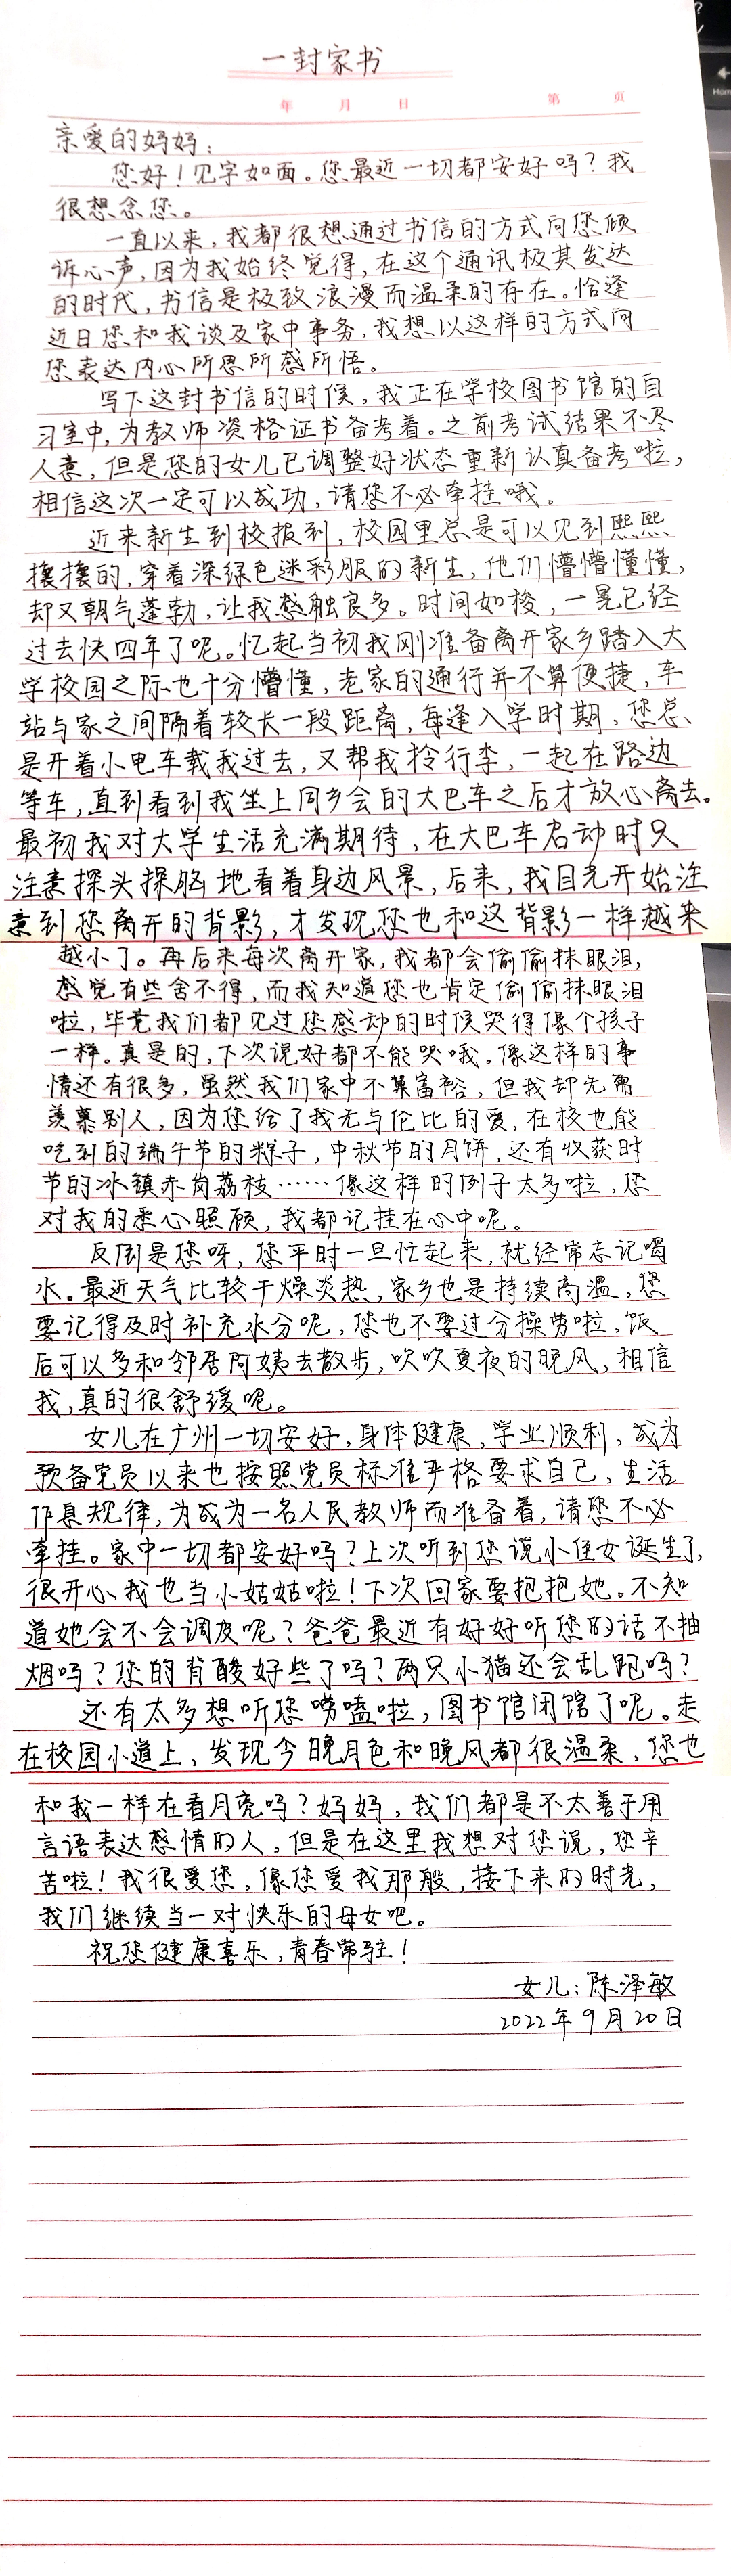 一封家书
年 月 日 第 页
亲爱的妈妈：
您好！见字如面。您最近一切都安好吗？我
很想念您。
一直以来，我都很想通过书信的方式向您倾
诉心声，因为我始终觉得，在这个通讯极其发达
的时代，书信是极致浪漫而温柔的存在。恰逢
近日您和我谈及家中事务，我想以这样的方式向
您表达内心所思所感所悟。
写下这封书信的时候，我正在学校图书馆的自
习室中，为教师资格证书备考着。之前考试结果不尽
人意，但是您的女儿已调整好状态重新认真备考啦，
相信这次一定可以成功，请您不必牵挂哦。
近来新生到校报到，校园里总是可以见到熙熙
攘攘的，穿着深绿色迷彩服的新生，他们懵懵懂懂，
却又朝气蓬勃，让我感触良多。时间如梭，一晃已经
过去快四年了呢。忆起当初我刚准备离开家乡踏入大
学校园之际也十分懵懂，老家的通行并不算便捷，车
站与家之间隔着较长一段距离，每逢入学时期，您总
是开着小电车载我过去，又帮我拎行李，一起在路边
等车，直到看到我坐上同乡会的大巴车之后才放心离去。
最初我对大学生活充满期待，在大巴车启动时只
注意探头探脑地看着身边风景，后来，我目光开始注
意到您离开的背影，才发现您也和这背影一样越来
越小了。再后来每次离开家，我都会偷偷抹眼泪，
感觉有些舍不得，而我知道您也肯定偷偷抹眼泪
啦，毕竟我们都见过您感动的时候哭得像个孩子
一样。真是的，下次说好都不能哭哦。像这样的事
情还有很多，虽然我们家中不算富裕，但我却无需
羡慕别人，因为您给了我无与伦比的爱，在校也能
吃到的端午节的粽子，中秋节的月饼，还有收获时
节的冰镇赤岗荔枝……像这样的例子太多啦，您
对我的悉心照顾，我都记挂在心中呢。
反倒是您呀，您平时一旦忙起来，就经常忘记喝
水。最近天气比较干燥炎热，家乡也是持续高温，您
要记得及时补充水分呢，您也不要过分操劳啦，饭
后可以多和邻居阿姨去散步，吹吹夏夜的晚风，相信
我，真的很舒缓呢。
女儿在广州一切安好，身体健康，学业顺利，成为
预备党员以来也按照党员标准严格要求自己，生活
作息规律，为成为一名人民教师而准备着，请您不必
牵挂。家中一切都安好吗？上次听到您说小侄女诞生了，
很开心我也当小姑姑啦！下次回家要抱抱她。不知
道她会不会调皮呢？爸爸最近有好好听您的话不抽
烟吗？您的背酸好些了吗？两只小猫还会乱跑吗？
还有太多想听您唠嗑啦，图书馆闭馆了呢。走
在校园小道上，发现今晚月色和晚风都很温柔，您也
和我一样在看月亮吗？妈妈，我们都是不太善于用
言语表达感情的人，但是在这里我想对您说，您辛
苦啦！我很爱您，像您爱我那般，接下来的时光，
我们继续当一对快乐的母女吧。
祝您健康喜乐，青春常驻！
女儿：陈泽敏
2022年9月20日
Home